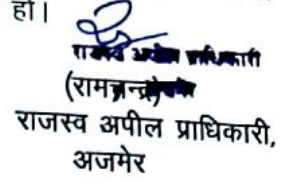 हो।
राजस्व अपील प्राधिकारी
(रामचन्द्र)
राजस्व अपील प्राधिकारी,
अजमेर